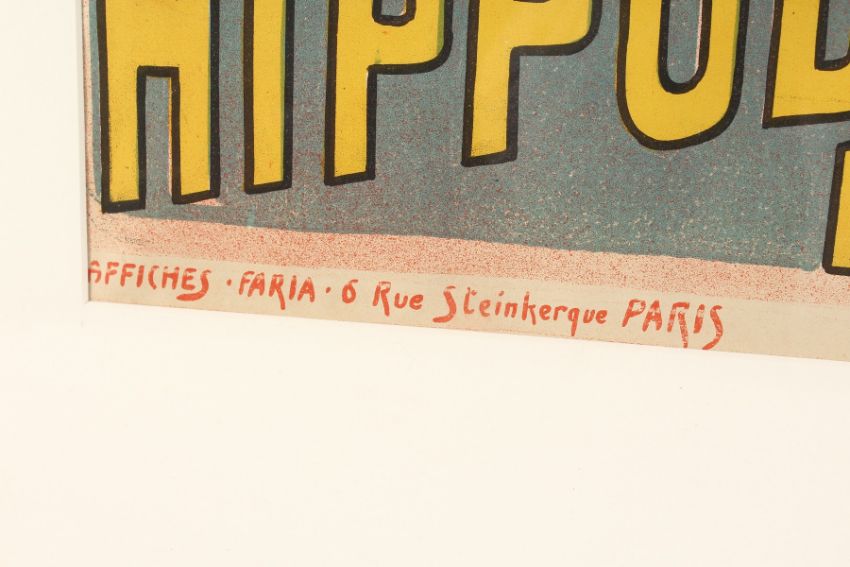 HIPPOD
AFFICHES · FARIA · 6 Rue Steinkerque PARIS